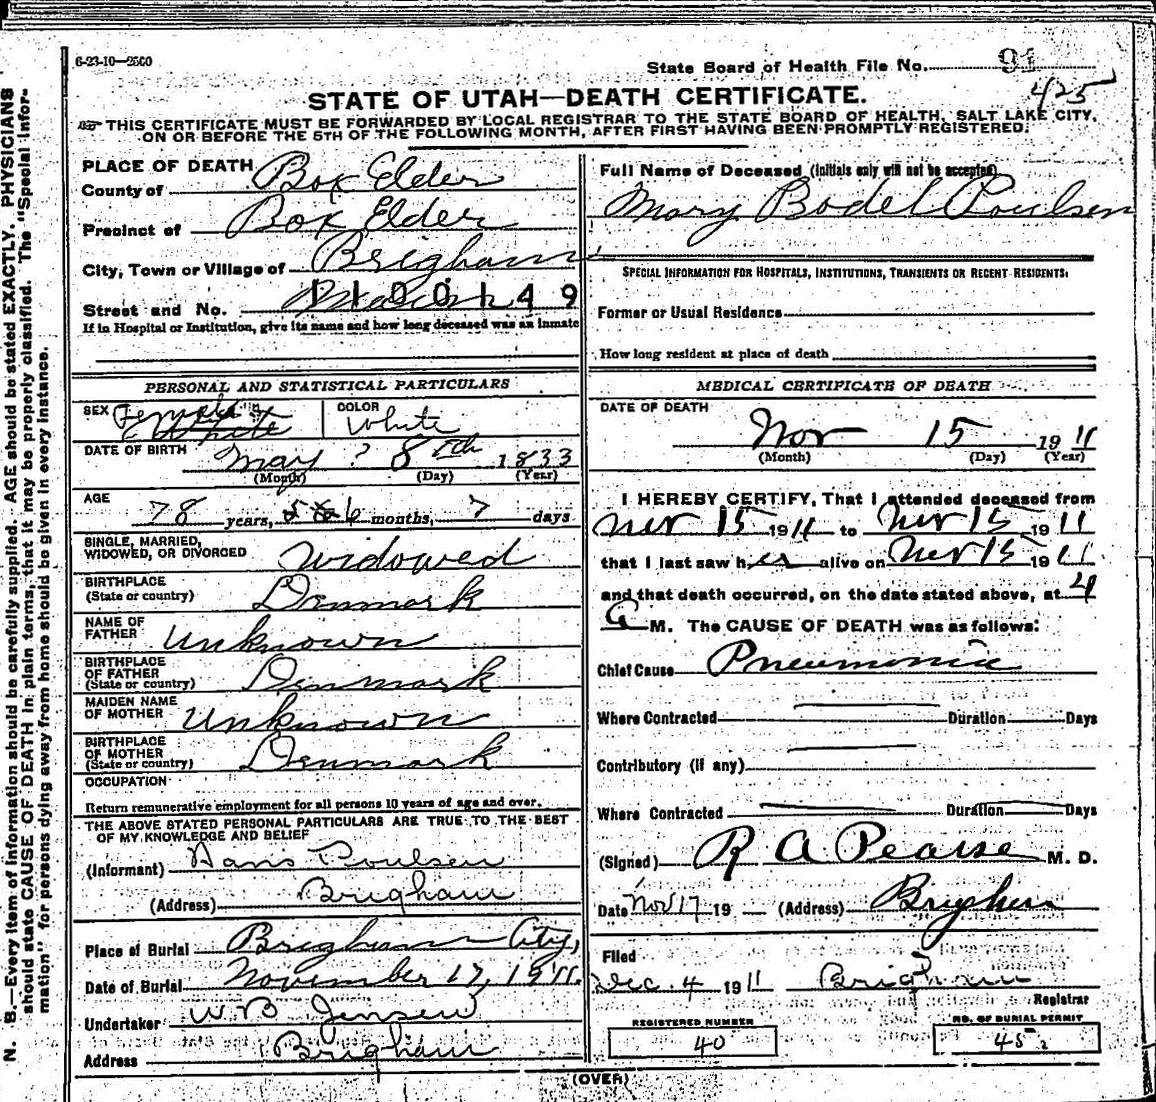 6-23-10—2500
State Board of Health File No. 91
425
STATE OF UTAH—DEATH CERTIFICATE.
THIS CERTIFICATE MUST BE FORWARDED BY LOCAL REGISTRAR TO THE STATE BOARD OF HEALTH, SALT LAKE CITY,
ON OR BEFORE THE 5TH OF THE FOLLOWING MONTH, AFTER FIRST HAVING BEEN PROMPTLY REGISTERED.
PLACE OF DEATH
County of Box Elder
Precinct of Box Elder
City, Town or Village of Brigham
Street and No. 1100149
If in Hospital or Institution, give its name and how long deceased was an inmate
PERSONAL AND STATISTICAL PARTICULARS
SEX Female
White
COLOR White
DATE OF BIRTH May ? 8th 1833
(Month) (Day) (Year)
AGE 78 years, 6 months, 7 days
SINGLE, MARRIED,
WIDOWED, OR DIVORCED Widowed
BIRTHPLACE
(State or country) Denmark
NAME OF
FATHER Unknown
BIRTHPLACE
OF FATHER
(State or country) Denmark
MAIDEN NAME
OF MOTHER Unknown
BIRTHPLACE
OF MOTHER
(State or country) Denmark
OCCUPATION
Return remunerative employment for all persons 10 years of age and over.
THE ABOVE STATED PERSONAL PARTICULARS ARE TRUE TO THE BEST
OF MY KNOWLEDGE AND BELIEF
(Informant) Hans Poulsen
(Address) Brigham
Place of Burial Brigham City,
Date of Burial November 17, 1911.
Undertaker W B Jensen
Address Brigham
Full Name of Deceased (Initials only will not be accepted)
Mary Bodel Poulsen
SPECIAL INFORMATION FOR HOSPITALS, INSTITUTIONS, TRANSIENTS OR RECENT RESIDENTS.
Former or Usual Residence
How long resident at place of death
MEDICAL CERTIFICATE OF DEATH
DATE OF DEATH
Nov 15 1911
(Month) (Day) (Year)
I HEREBY CERTIFY, That I attended deceased from
Nov 15 1911 to Nov 15 1911
that I last saw her alive on Nov 15 1911
and that death occurred, on the date stated above, at 4
a M. The CAUSE OF DEATH was as follows:
Chief Cause Pneumonia
Where Contracted Duration Days
Contributory (if any)
Where Contracted Duration Days
(Signed) R A Pearse M. D.
Date Nov 17 19 (Address) Brigham
Filed
Dec. 4 1911 Brigham
Registrar
REGISTERED NUMBER
40
NO. OF BURIAL PERMIT
45
(OVER)
N. B.—Every item of information should be carefully supplied. AGE should be stated EXACTLY. PHYSICIANS
should state CAUSE OF DEATH in plain terms, that it may be properly classified. The "Special Infor-
mation" for persons dying away from home should be given in every instance.